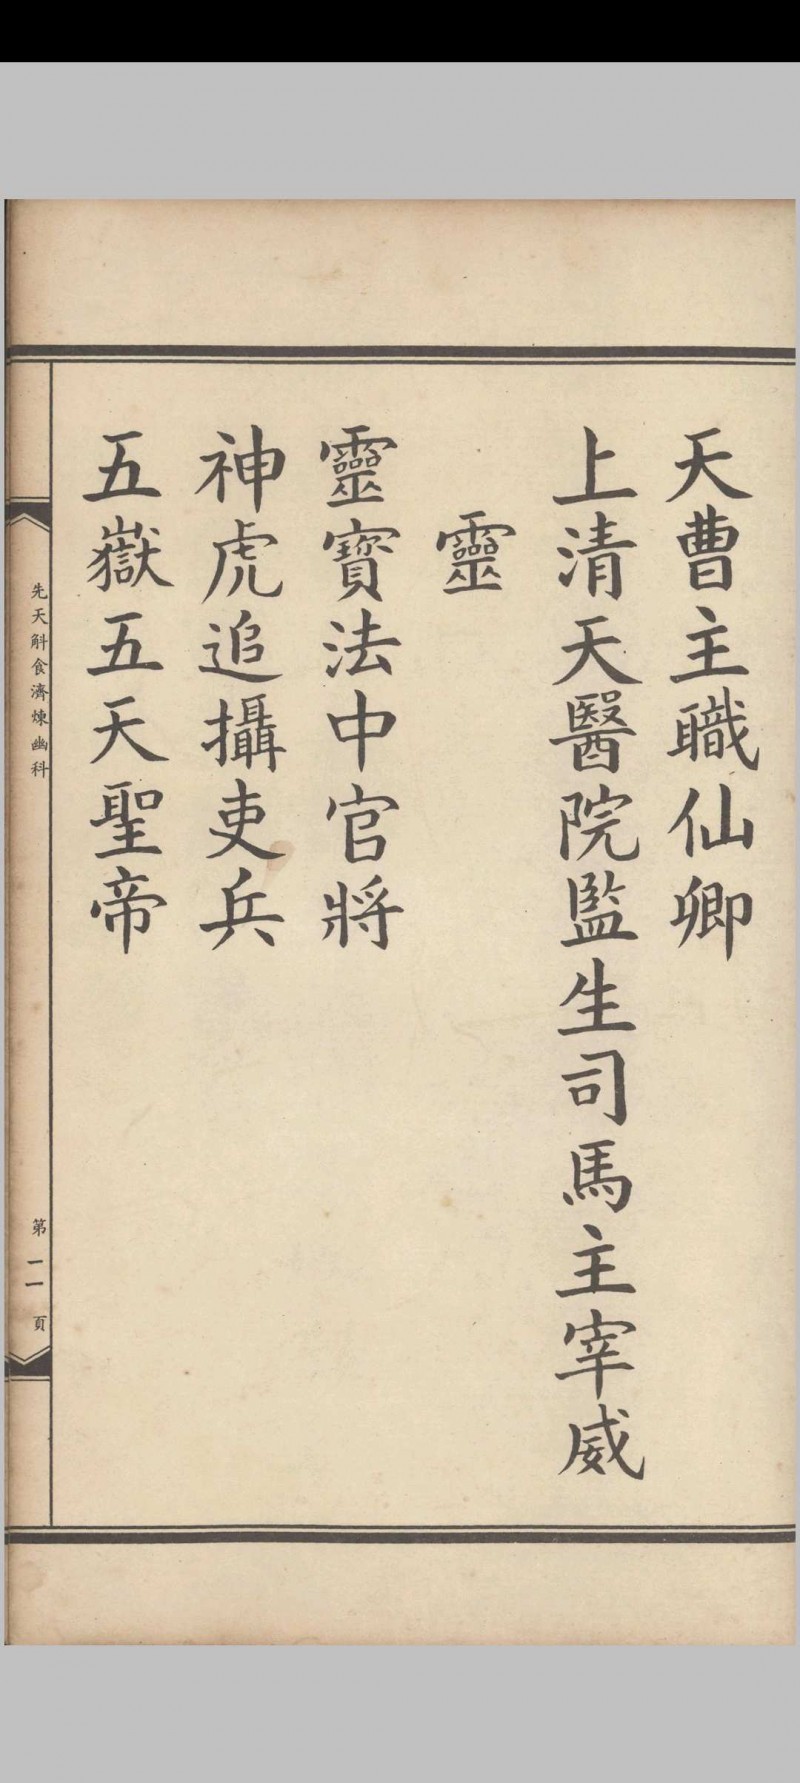 天曹主職仙卿
上清天醫院監生司馬主宰威
靈
靈寶法中官將
神虎追攝吏兵
五嶽五天聖帝
先天斛食濟煉幽科
第二頁